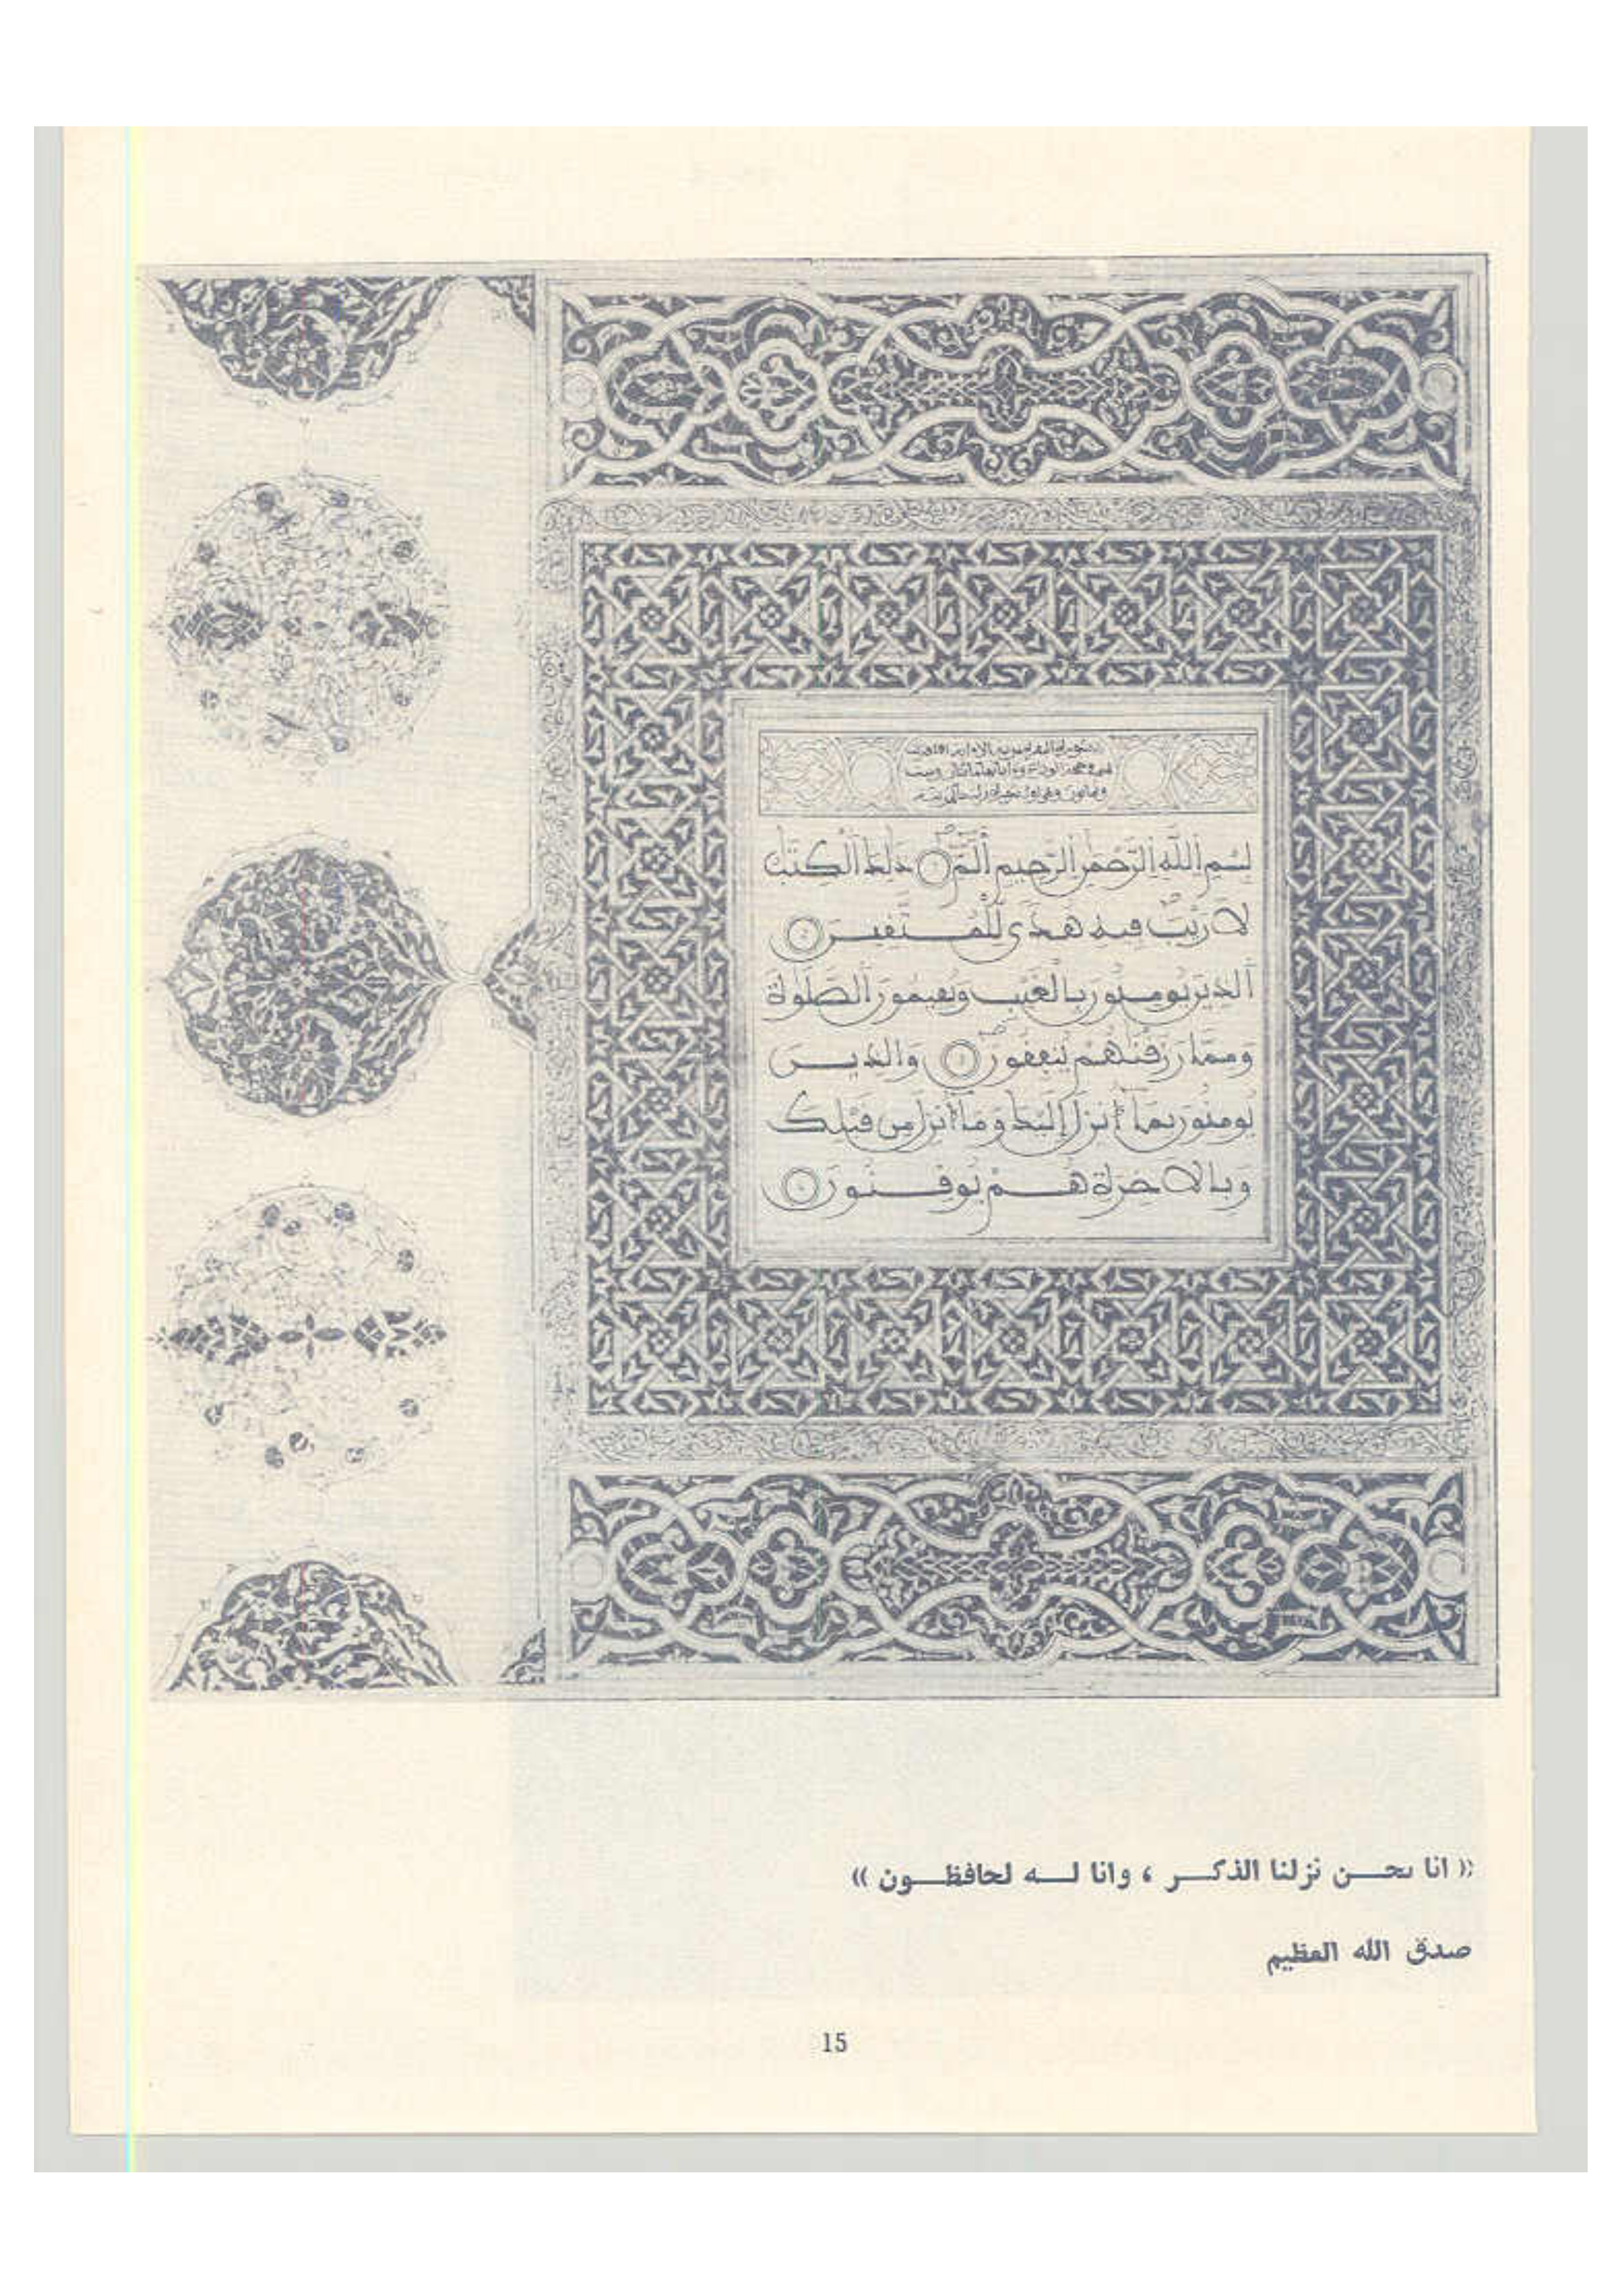 بسم الله الرحمن الرحيم ألم ذلك الكتب
لا ريب فيه هدى للمتقين
الذين يومنون بالغيب ويقيمون الصلوة
ومما رزقناهم ينفقون والذين
يومنون بما أنزل إليك وما أنزل من قبلك
وبالاخرة هم يوقنون
(( انا نحن نزلنا الذكر ، وانا له لحافظون ))
صدق الله العظيم
15